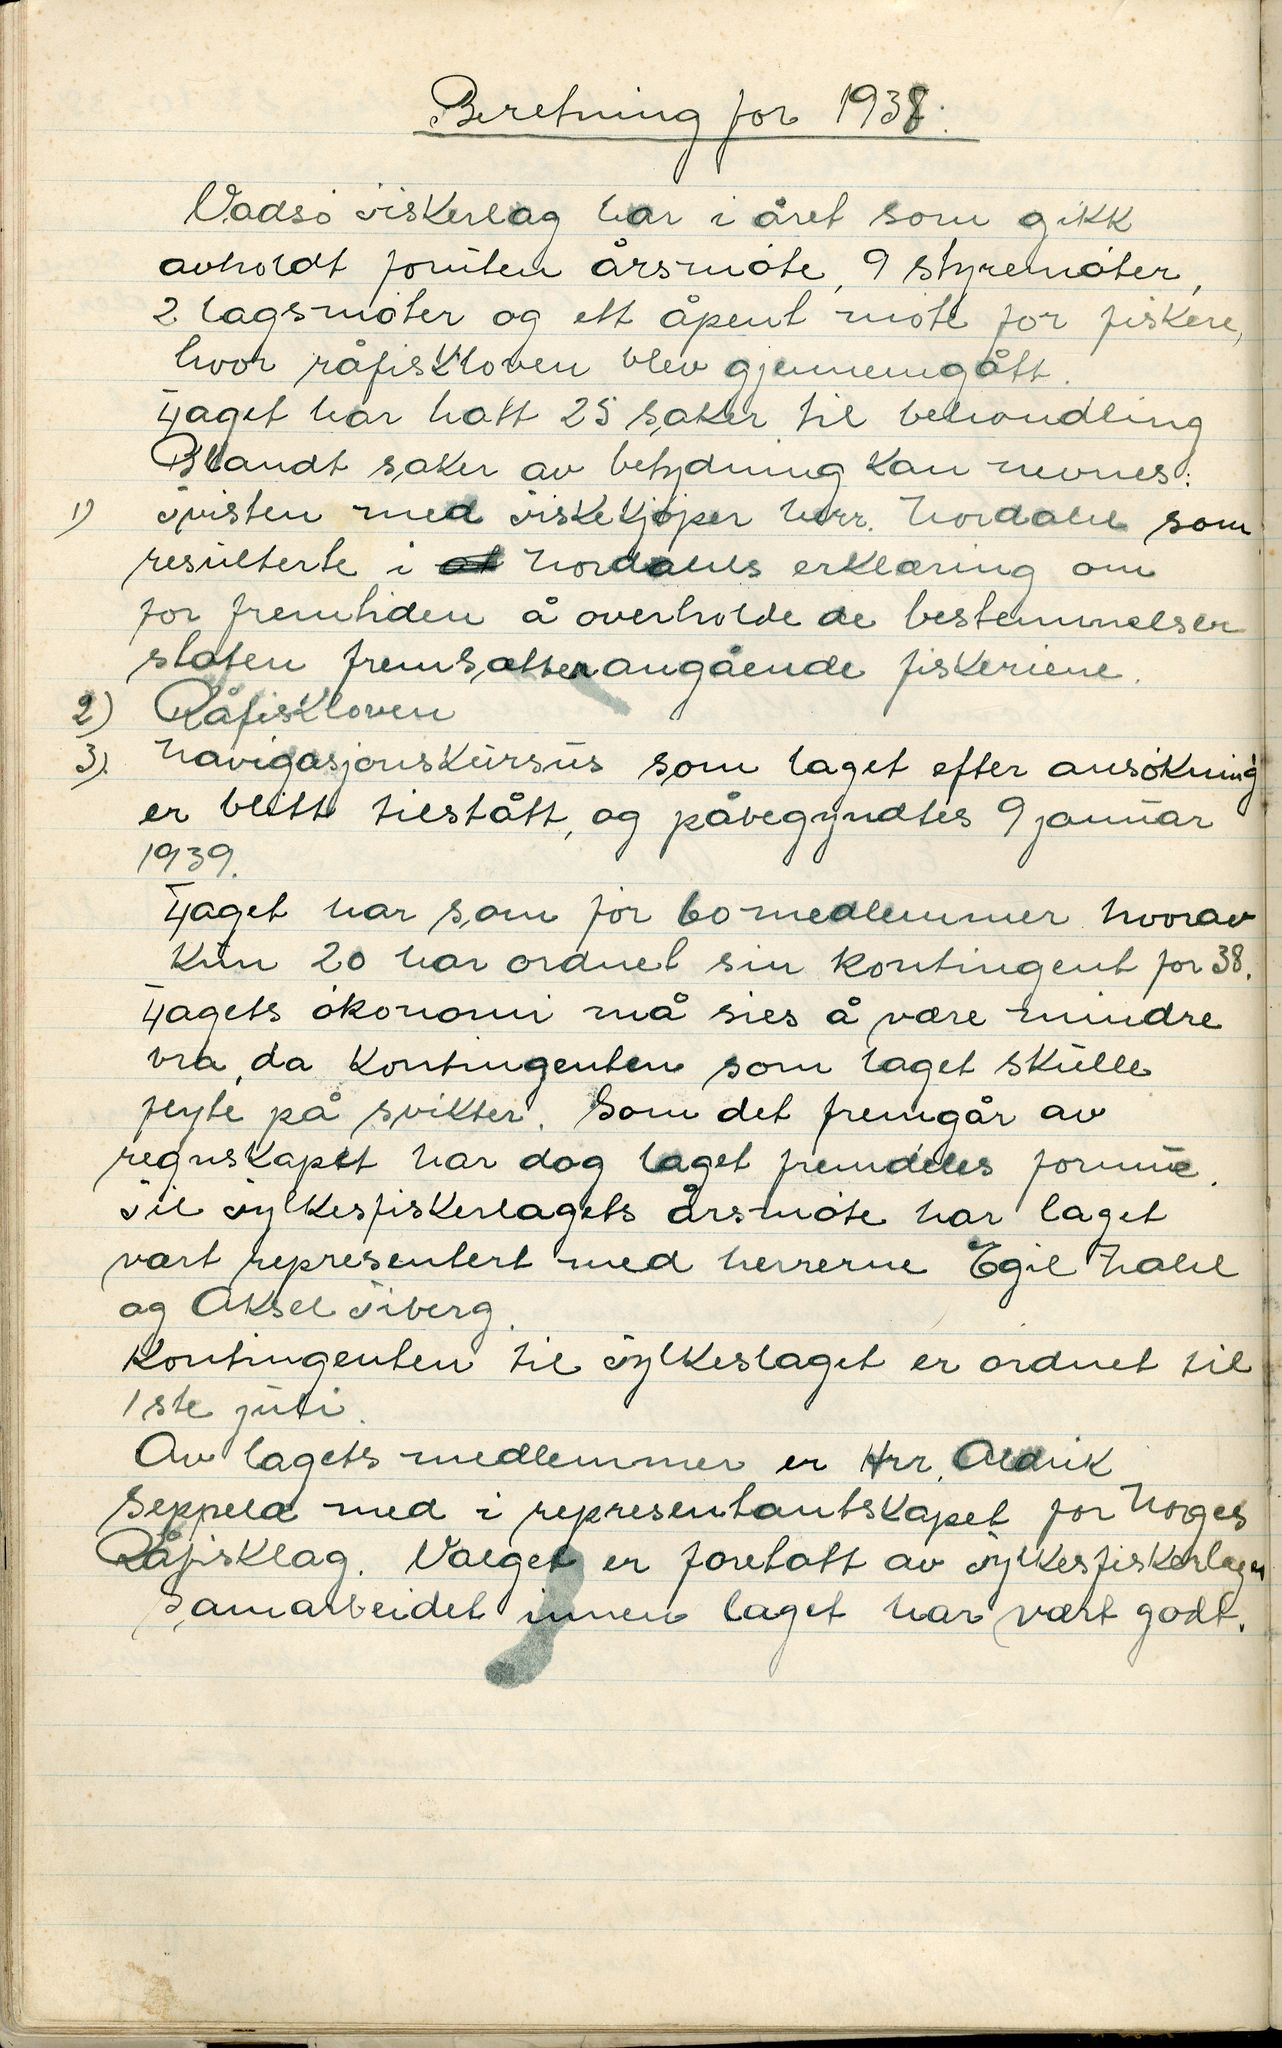 Beretning for 1938.
Vadsö Fiskerlag har i året som gikk
avholdt foruten årsmöte, 9 styremöter,
2 lagsmöter og ett åpent möte for fiskere,
hvor råfiskloven blev gjennemgått.
Laget har hatt 25 saker til behandling
Blandt saker av betydning kan nevnes:
1) Tvisten med Fiskekjöper herr. Nordahl som
resulterte i Nordahls erklæring om
for fremtiden å overholde de bestemmelser
staten fremsætter angående fiskeriene.
2) Råfiskloven
3) Navigasjonskursus som laget efter ansökning
er blitt tilstått, og påbegyndtes 9 januar
1939.
Laget har som för 60 medlemmer hvorav
kun 20 har ordnet sin kontingent for 38.
Lagets ökonomi må sies å være mindre
bra, da kontingenten som laget skulle
flyte på svikter. Som det fremgår av
regnskapet har dog laget fremdeles formue.
Til Fylkesfiskerlagets årsmöte har laget
vært representert med herrerne Egil Dahl
og Aksel Fiberg.
Kontingenten til Fylkeslaget er ordnet til
1ste juli.
Av lagets medlemmer er Hrr. Aldrik
Seppela med i representantskapet for Norges
Råfisklag. Valget er foretatt av Fylkesfiskerlaget
Samarbeidet innen laget har vært godt.